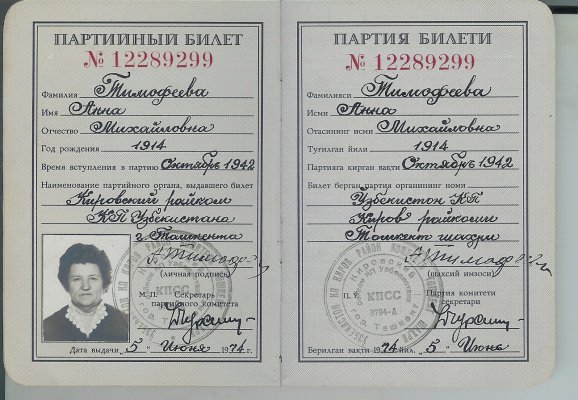 ПАРТИЙНЫЙ БИЛЕТ
№ 12289299
Фамилия Тимофеева
Имя Анна
Отчество Михайловна
Год рождения 1914
Время вступления в партию Октябрь 1942
Наименование партийного органа, выдавшего билет
Кировский райком
КП Узбекистана
г. Ташкента
(личная подпись)
М. П. Секретарь
партийного комитета
КПСС
Дата выдачи „5" Июня 1974 г.
ПАРТИЯ БИЛЕТИ
№ 12289299
Фамилияси Тимофеева
Исми Анна
Отасининг исми Михайловна
Туғилган йили 1914
Партияга кирган вақти Октябрь 1942
Билет берган партия органининг номи
Узбекистон КП
Киров райкоми
Тошкент шаҳри
(шахсий имзоси)
П. Ў. Партия комитети
секретари
КПСС
3794-А
Берилган вақти 1974 йил. „5" Июнь